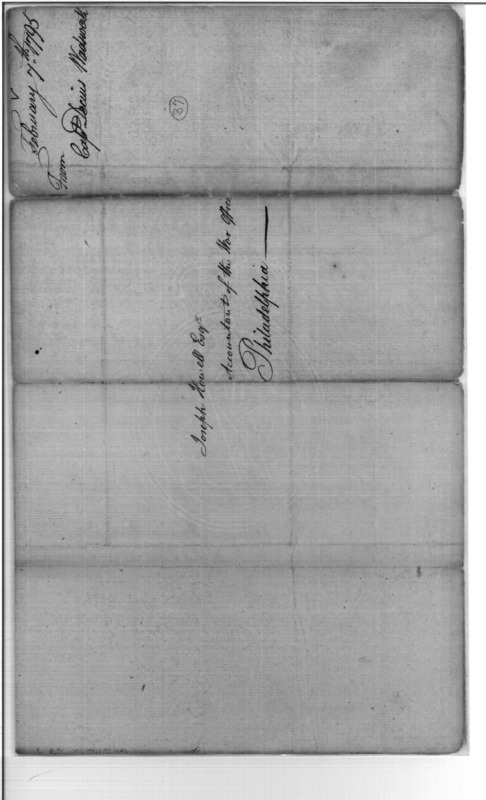 February 7th 1795
From
Capt
37
Joseph Howell Esqr
Accountant of the War Office
Philadelphia